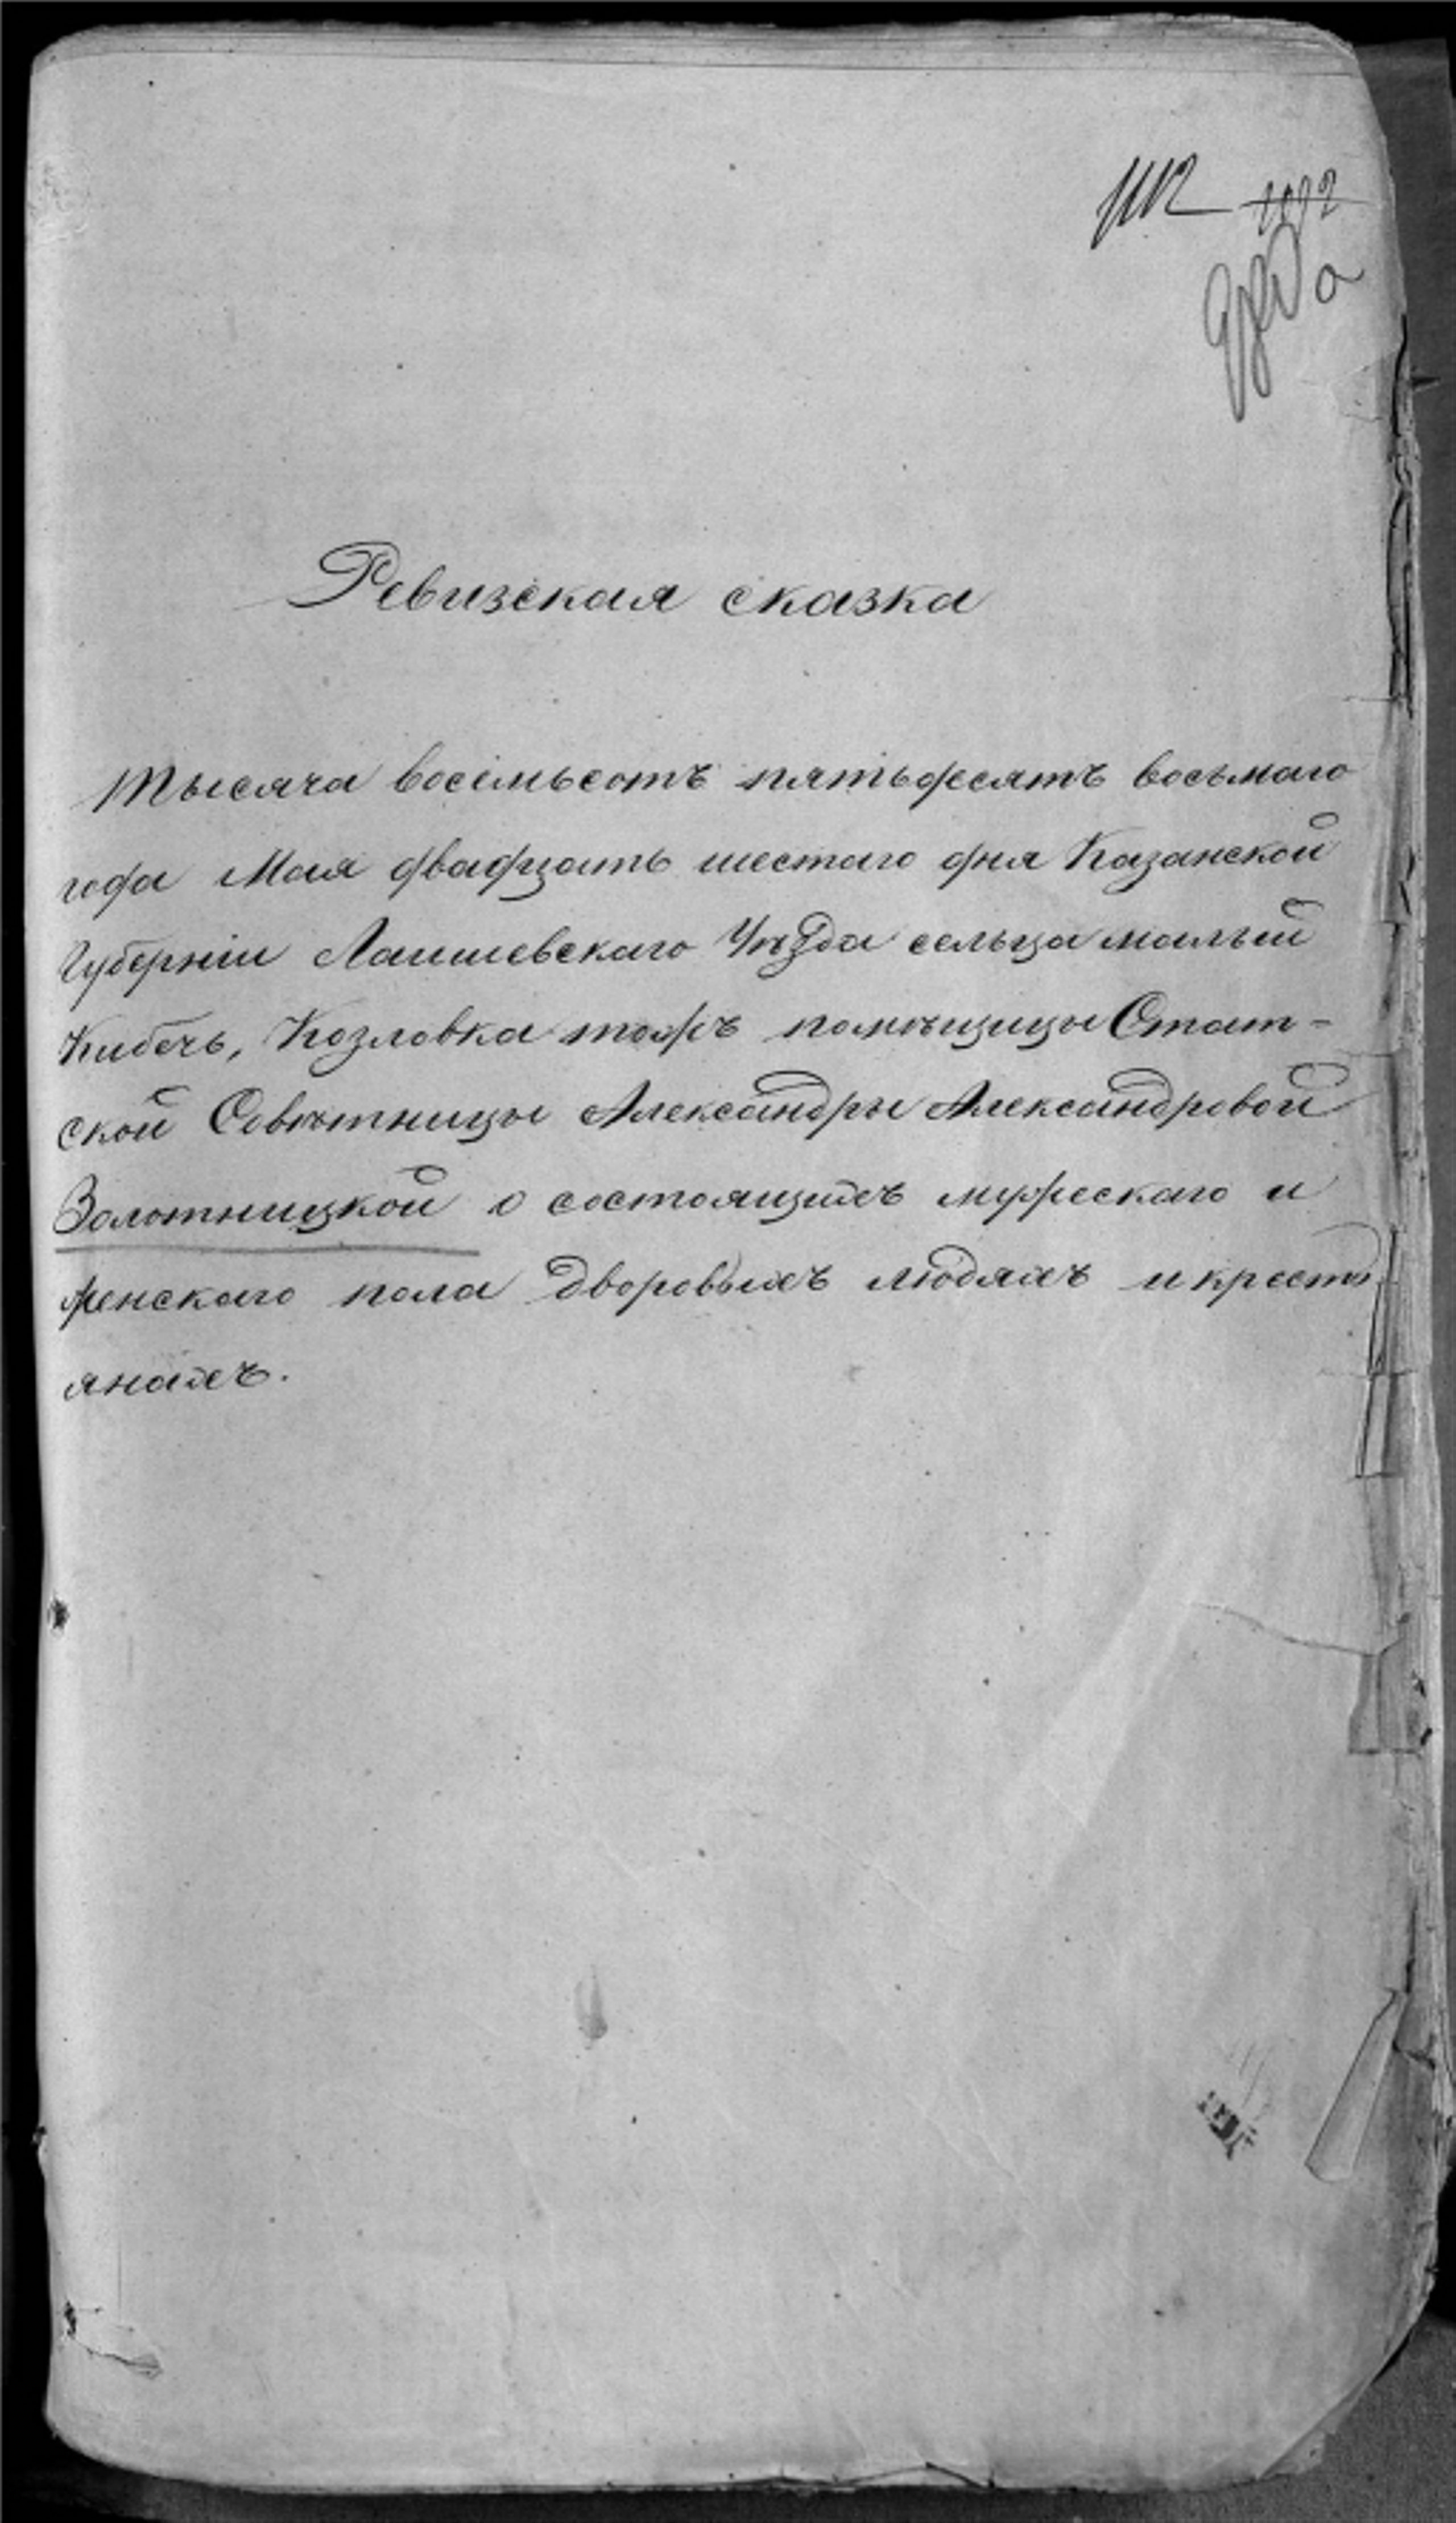 1112 1092
Ревизская сказка
Тысяча восемьсотъ пятьдесятъ восьмаго
года Мая двадцать шестаго дня Казанской
Губерніи Лаишевскаго Уѣзда сельца малый
Кибечь, Козловка тожъ помѣщицы Стат-
ской Совѣтницы Александры Александровой
Золотницкой о состоящихъ мужескаго и
женскаго пола дворовыхъ людяхъ и крестъ
янахъ.